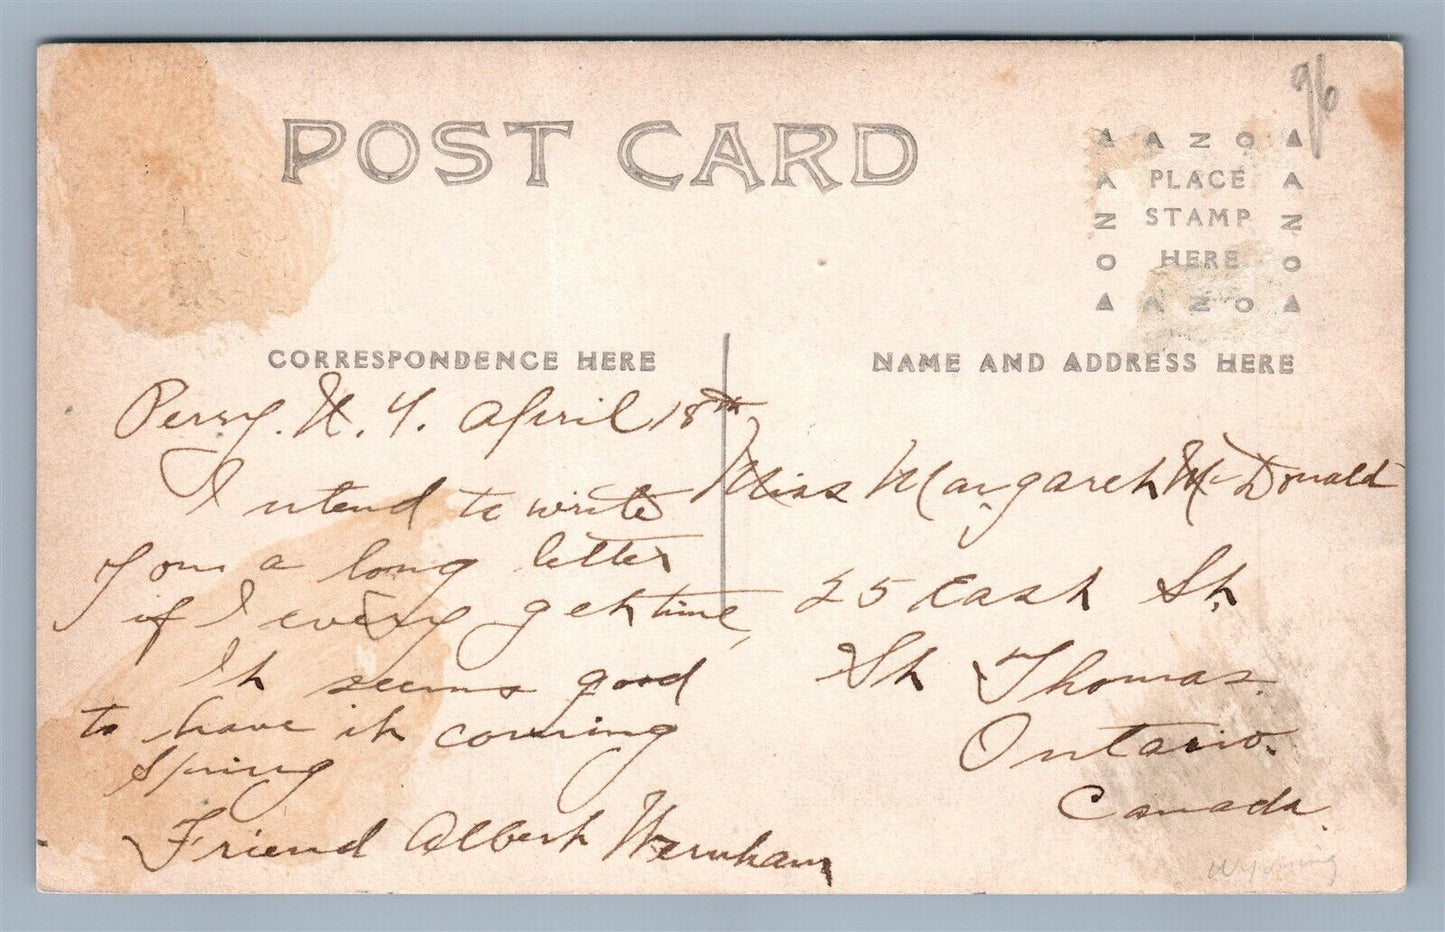 96
POST CARD
AZO
PLACE
STAMP
HERE
AZO
AZO
AZO
CORRESPONDENCE HERE
NAME AND ADDRESS HERE
Perry. N. Y. April 18th
I intend to write
you a long letter
if I every get time,
It seems good
to have it coming
spring
Friend Albert Wernham
Miss Margaret McDonald
25 East St,
St Thomas.
Ontario.
Canada.
Wyoming